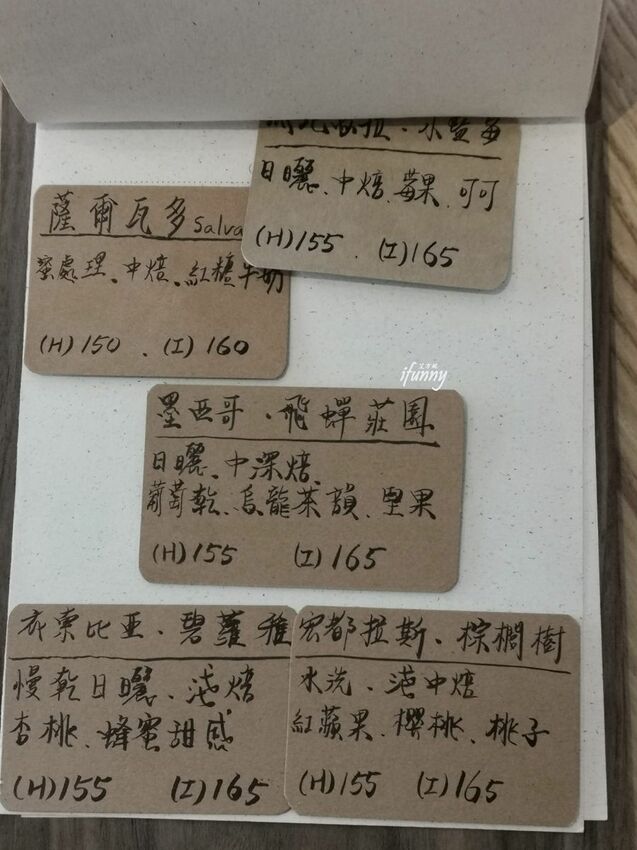 日曬、中焙、莓果、可可
(H)155 . (I)165
薩爾瓦多 Salva
蜜處理、中焙、紅糖牛奶
(H)150 . (I)160
ifunny
墨西哥．飛蟬莊園
日曬、中深焙、
葡萄乾、烏龍茶韻、堅果
(H)155 (I)165
衣索比亞．碧蘿雅
慢乾日曬、淺焙
杏桃、蜂蜜甜感
(H)155 (I)165
宏都拉斯．棕櫚樹
水洗、淺中焙
紅蘋果、櫻桃、桃子
(H)155 (I)165